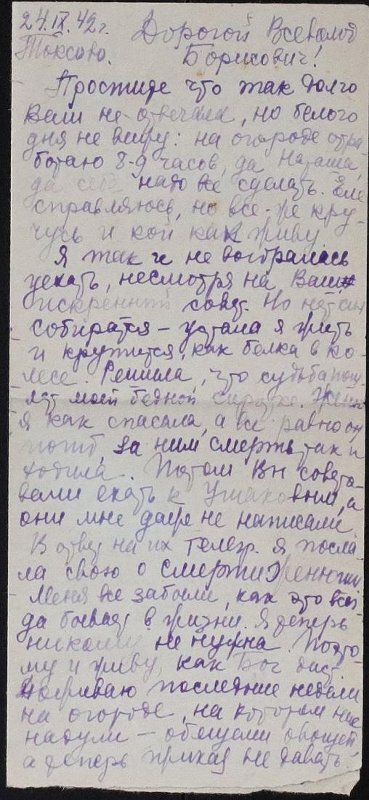 24.IX.42 г. Дорогой Всеволод
Токсово. Борисович!
Простите что так долго
Вам не отвечала, но белого
дня не вижу: на огороде отра
ботаю 8-9 часов, да Наташа,
да себе надо все сделать. Еле
справляюсь, но все-же кру-
чусь и кой как живу
Я так и не выбралась
уехать, несмотря на Ваш
искренний совет. Но нет сил
собираться – устала я жить
и кружиться, как белка в ко-
лесе. Решила, что судьба
моей бедной сиротке.
я как спасала, а все равно он
погиб, за ним смерть так и
ходила. Потом Вы совето-
вали ехать к Ушаковым, а
они мне даже не написали
В ответ на их телегр. я посла
ла свою о смерти Женюшки
Меня все забыли, как это все
да бывает в жизни. Я теперь
никому не нужна. Поэто-
му и живу, как Бог даст
последние недели
на огороде, на котором нас
надули – обещали овощей
а теперь приказ не давать.